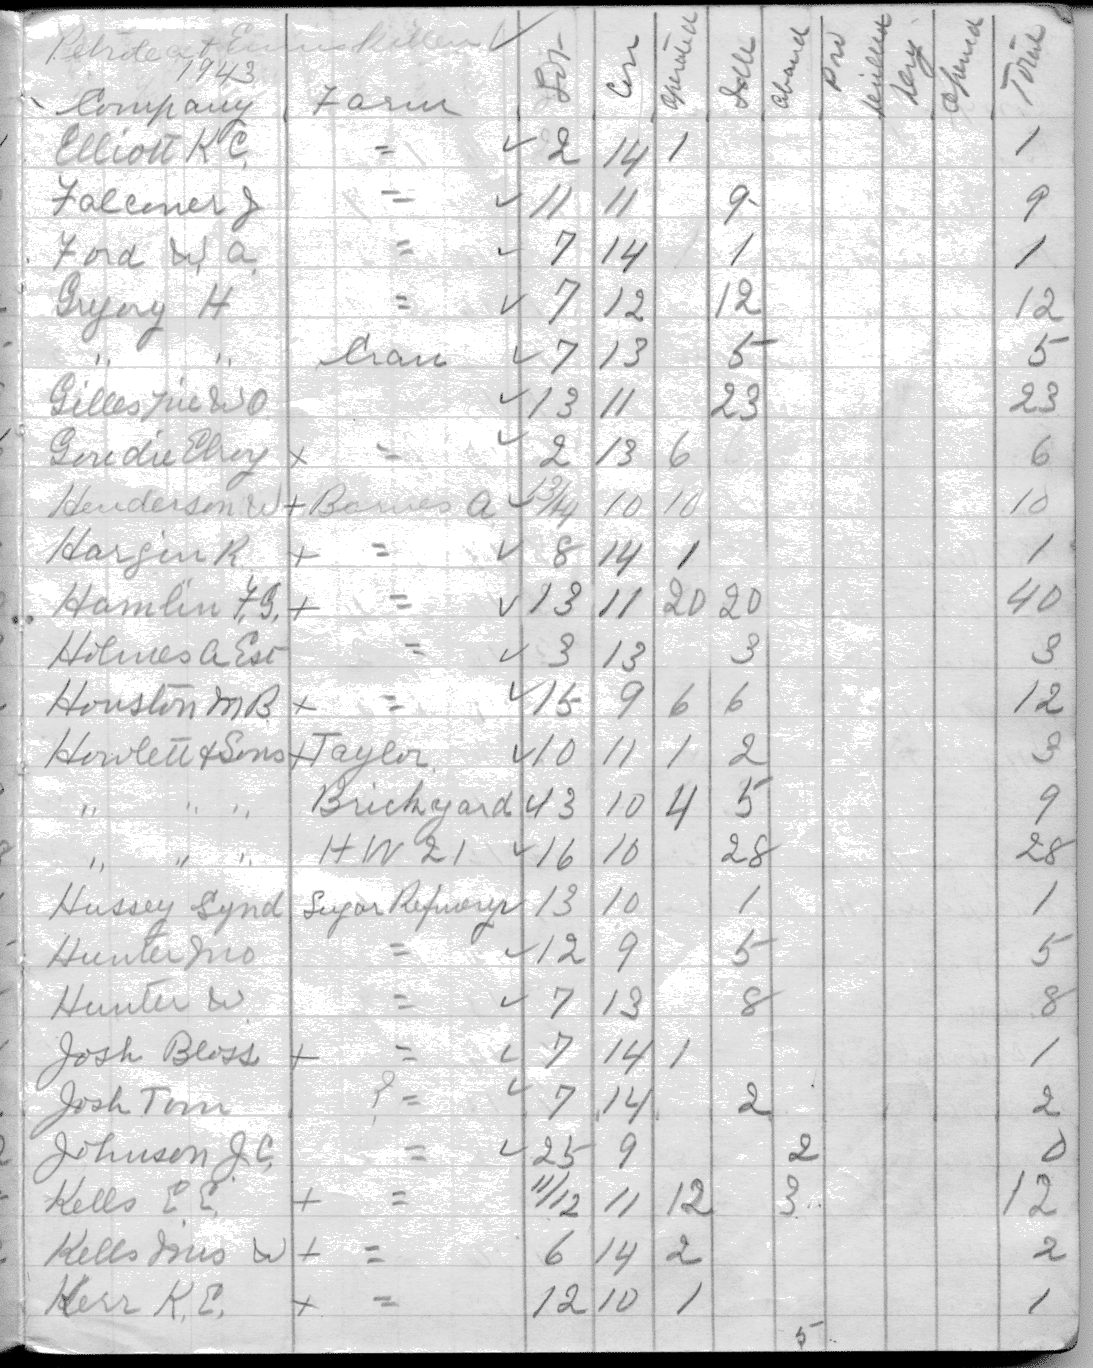 Petrolea & Enniskillen ✓
1943
Company Farm Lot Con Operated Idle Aband Pro Drilled Dry Opened Total
Elliott K C. = ✓ 2 14 1 1
Falconer J = ✓ 11 11 9 9
Ford W. A. = ✓ 7 14 1 1
Gregory H = ✓ 7 12 12 12
" " Cran ✓ 7 13 5 5
Gillespie W O ✓ 13 11 23 23
Geredie Elroy + = ✓ 2 13 6 6
Henderson W + Barnes A ✓ 13/14 10 10 10
Hargin K + = ✓ 8 14 1 1
Hamlin F.G. + = ✓ 13 11 20 20 40
Holmes A Est = ✓ 3 13 3 3
Houston M B. + = ✓ 15 9 6 6 12
Howlett & Sons + Taylor ✓ 10 11 1 2 3
" " " Brickyard ✓ 13 10 4 5 9
" " " H W 21 ✓ 16 10 28 28
Hussey Synd Sugar Refinery ✓ 13 10 1 1
Hunter Jno = ✓ 12 9 5 5
Hunter W. = ✓ 7 13 8 8
Josh Bloss + = ✓ 7 14 1 1
Josh Tom ? = ✓ 7 14 2 2
Johnson J.C. = ✓ 25 9 2 0
Kells E E. + = 11/12 11 12 3 12
Kells Mrs W + = 6 14 2 2
Kerr K. E. + = 12 10 1 1
5